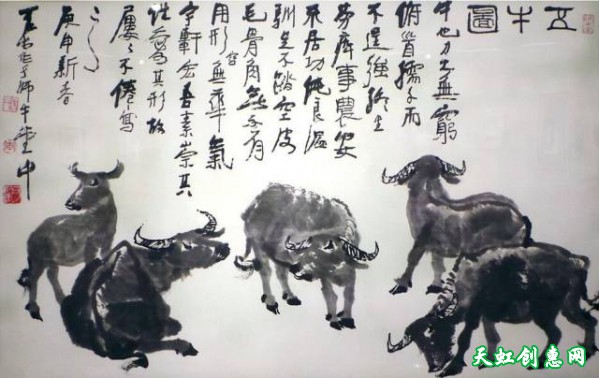 五牛圖
牛也力大無窮
俯首孺子而
不逞強終生
勞瘁事農安
不居功純良温
馴足不踏空皮
毛骨角無不有
用形容無華氣
宇軒宏吾素崇其
性爱其形故
屢〻不倦寫
之
庚申新春
可染作于師牛堂中
天虹创惠网